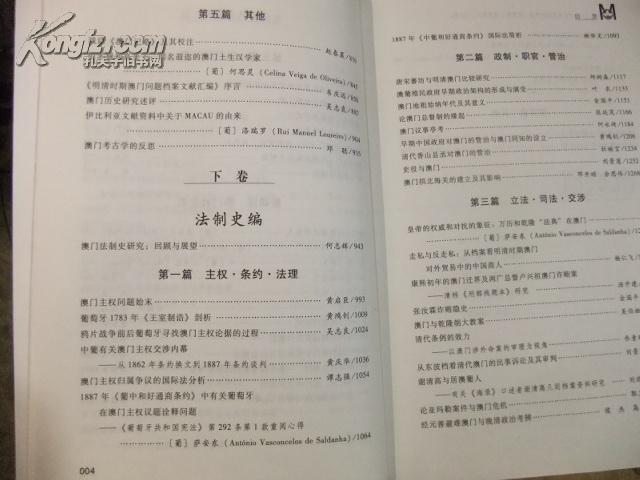 Kongfz.com
孔夫子旧书网
第五篇 其他
其校注
赵春晨/836
名澳迩的澳门土生汉学家
[葡] 何思灵 (Celina Veiga de Oliveira)
《明清时期澳门问题档案文献汇编》序言
韦庆远
澳门历史研究述评
吴志良
伊比利亚文献资料中关于 MACAU 的由来
[葡] 洛瑞罗 (Rui Manuel Loureiro)/904
澳门考古学的反思
邓聪/935
下卷
法制史编
澳门法制史研究：回顾与展望
何志辉/943
第一篇 主权·条约·法理
澳门主权问题始末
黄启臣/993
葡萄牙1783年《王室制诰》剖析
黄鸿钊/1009
鸦片战争前后葡萄牙寻找澳门主权论据的过程
吴志良/1024
中葡有关澳门主权交涉内幕
——从1862年条约换文到1887年条约谈判
黄庆华/1036
澳门主权归属争议的国际法分析
谭志强/1054
1887年《葡中和好通商条约》中有关葡萄牙
在澳门主权议题诠释问题
——《葡萄牙共和国宪法》第292条第1款重阅心得
[葡] 萨安东 (António Vasconcelos de Saldanha)/1064
004
目录
1887年《中葡和好通商条约》国际法简析
柳华文/1093
第二篇 政制·职官·管治
唐宋蕃坊与明清澳门比较研究
澳葡殖民政府早期政治架构的形成与演变
澳门地租始纳年代及其意义
金国平
论澳门总督制的缘起
澳门议事亭考
早期中国政府对澳门的管治与澳门同知的设立
黄鸿钊
清代香山县丞对澳门的管治
吏役与澳门
澳门拱北海关的建立及其影响
邓开颂
第三篇 立法·司法·交涉
皇帝的权威和对抗的象征：万历和乾隆“法典”在澳门
[葡] 萨安东 (António Vasconcelos de Saldanha)
走私与反走私：从档案看明清时期澳门
对外贸易中的中国商人
杨仁飞
康熙初年的澳门迁界及两广总督卢兴祖澳门诈贿案
张汝霖诈贿隐史
澳门与乾隆朝大教案
清代条例的效力
——以澳门涉外命案的审理为视角
从东波档看清代澳门的民事诉讼及其审判
谢清高与居澳葡人
论亚玛勒案件与澳门危机
经元善避难澳门与晚清政治考辨